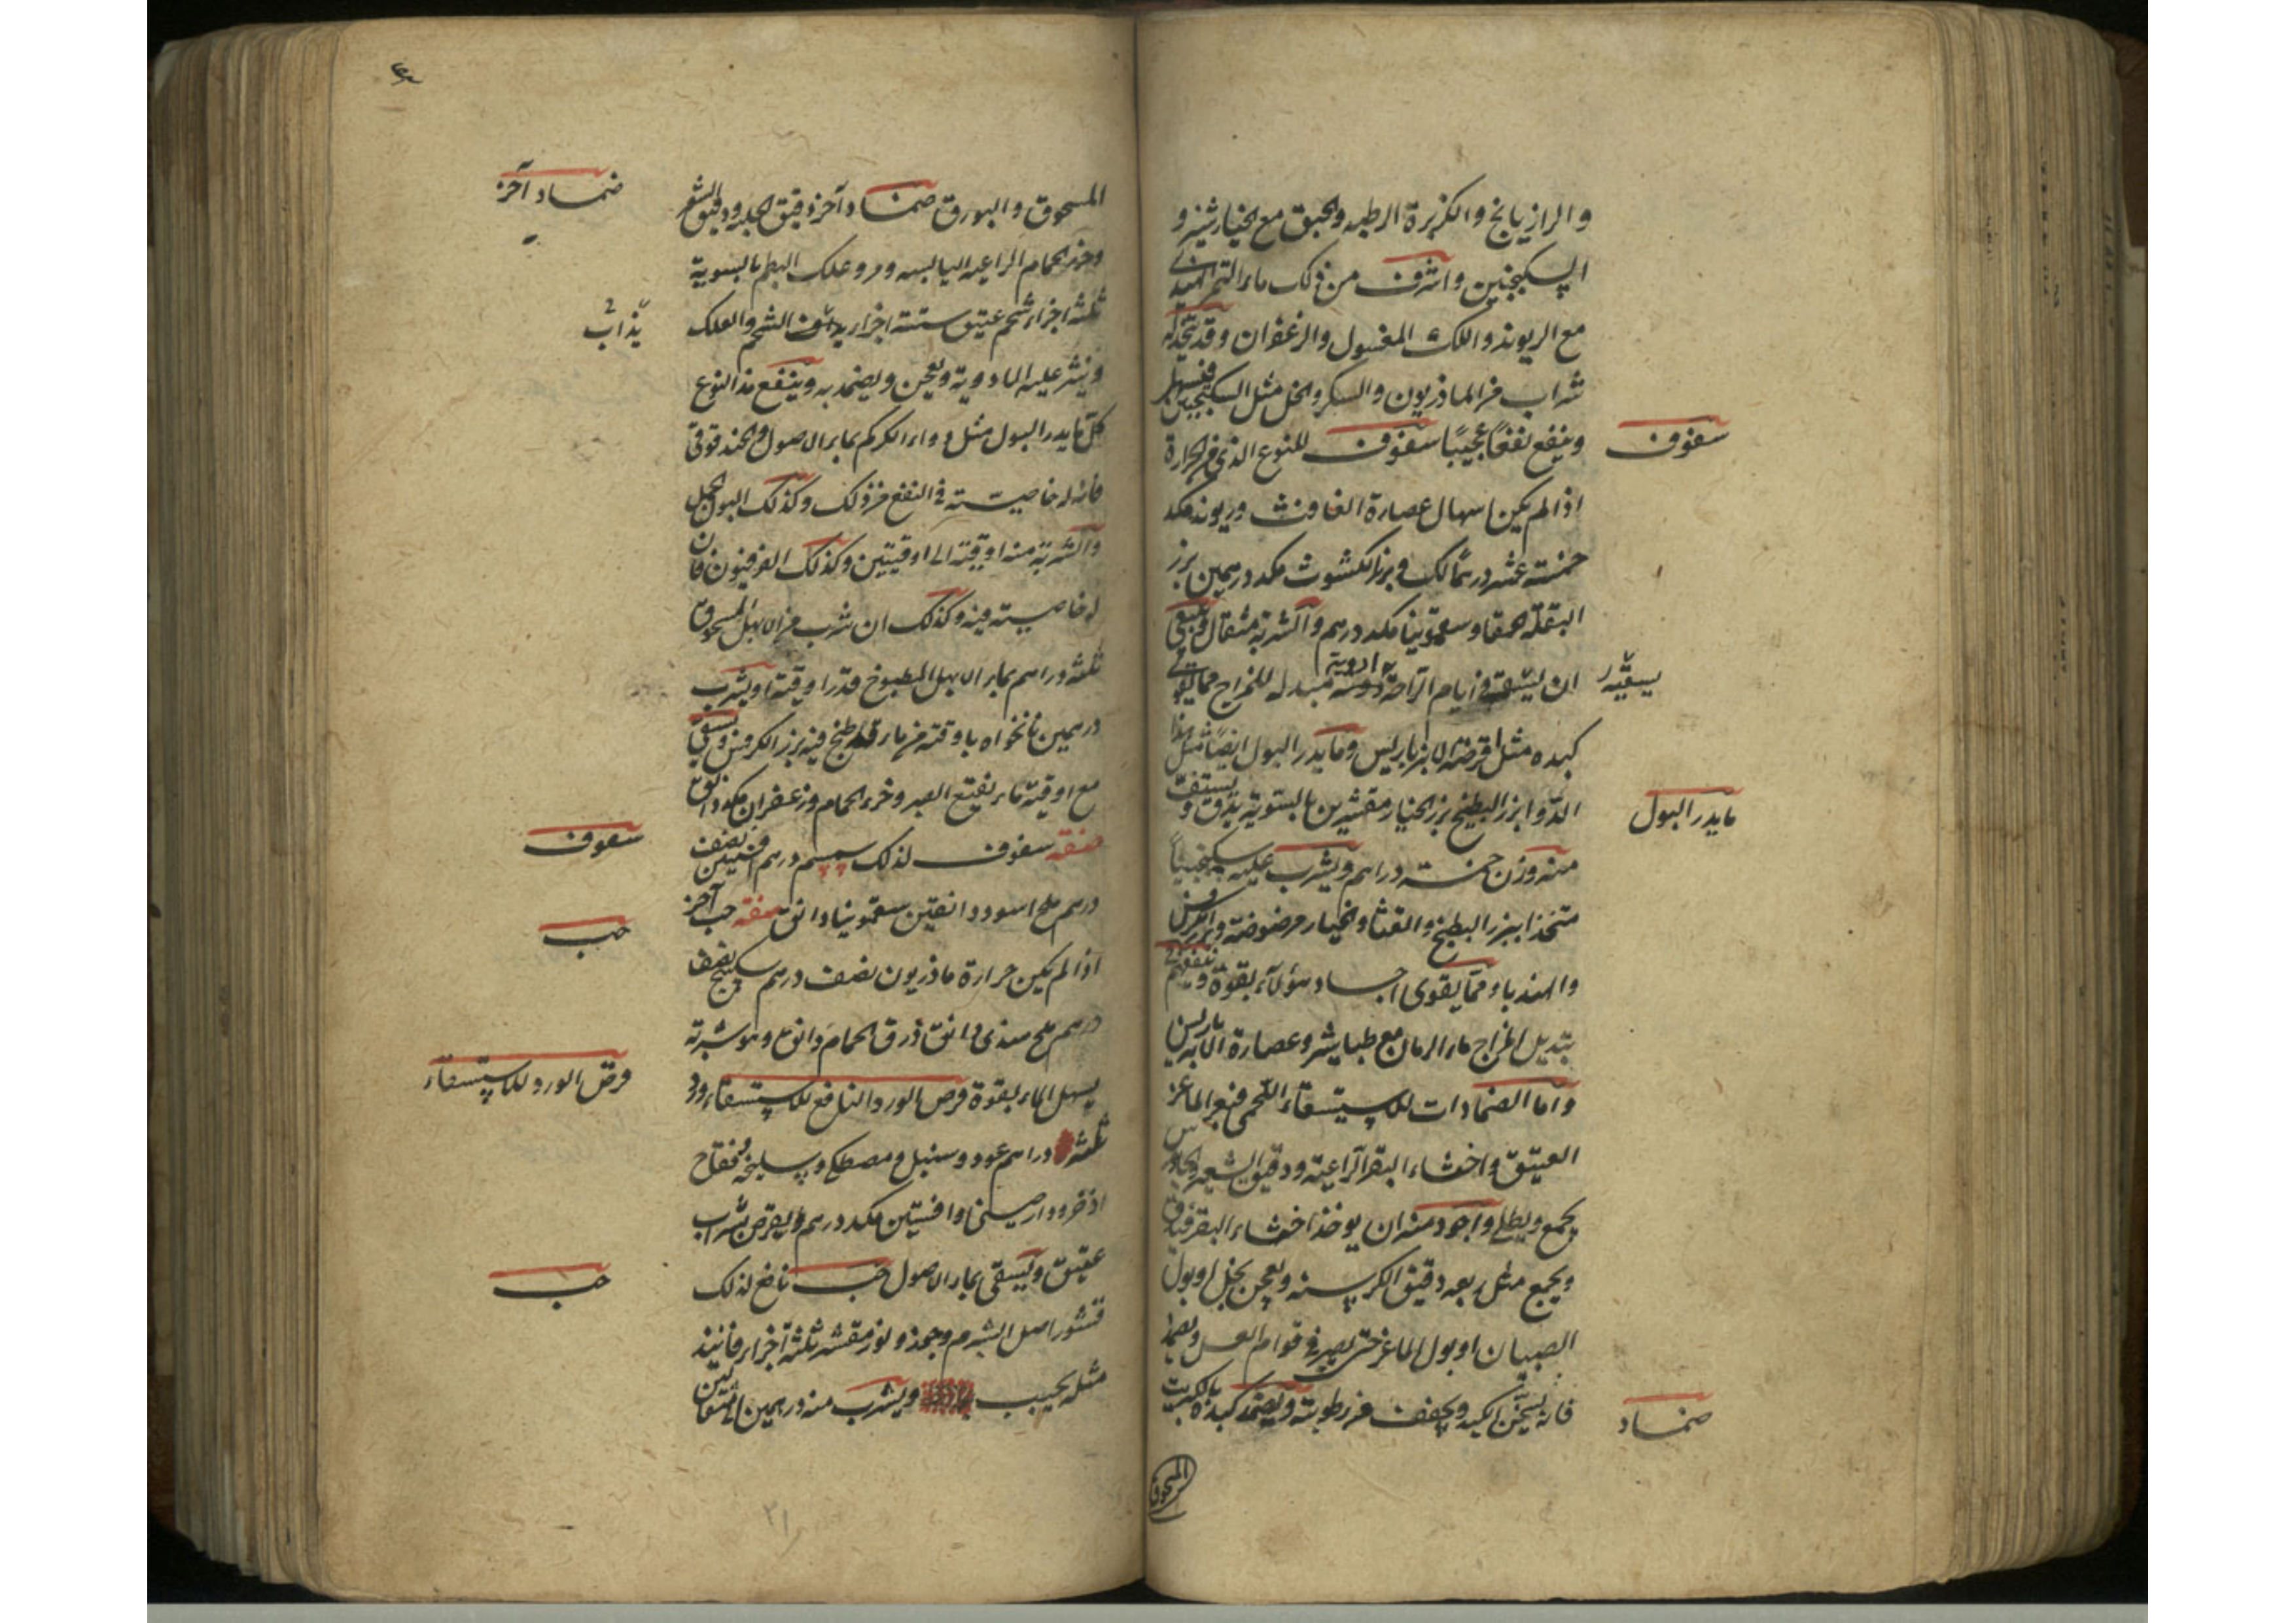 والرازيانج والكزبرة الرطبه والحبق مع الخيارشنبر و
السكنجبين واشرف من ذلك ماء التمر الهندي
مع الريوند واللك المغسول والزعفران وقد يتخذ له
شراب من الماذريون والسكر والخل مثل السكنجبين فيسهل
وينفع نفعًا عجيبًا سفوف للنوع الذي مع الحرارة
سفوف
اذا لم يكن اسهال عصارة الغافث وريوند مكد
خمسة عشر درهمًا لك وبزر الكشوث مكد درهمين بزر
البقلة الحمقا وسقمونيا مكد درهم والشربة مثقال وينبغي
ان يسقى في ايام الراحة ادوية مبدله للمزاج مما يقوي
يسقيه
كبده مثل اقرصة الامبرباريس وما يدر البول ايضًا مثل هذا
الدوا بزر البطيخ بزر الخيار مقشرين بالسوية يدق و يستف
ما يدر البول
منه وزن خمسة دراهم ويشرب عليه سكنجبينًا
متخذا ببزر البطيخ والقثا والخيار مرضوضة وبزر الكرفس
والهندبا ومما يقوى اجساد هؤلاء بقوة وينفعهم في
تبديل المزاج ماء الرمان مع طباشير وعصارة الامبرباريس
واما الضمادات للاستسقاء اللحمي فبعر الماعز
العتيق واخثاء البقر الراعية ودقيق الشعير والجاورس
يجمع ويطلى واجود منه ان يوخذ اخثاء البقر فيدق
ويجمع مثل ربعه دقيق الكرسنه ويعجن بخل او بول
الصبيان او بول الماعز حتى يصير في قوام العسل ويضمد
فانه يسخن الكبد ويجفف من رطوبته ويضمد كبده بالكبريت
ضماد
المسحوق
المسحوق والبورق ضماد آخر دقيق الحلبه ودقيق الشعير
ضماد آخر
وخرؤ الحمام الراعيه اليابسه ومر وعلك البطم بالسوية
ثلثه اجزاء شحم عتيق ستة اجزاء يداف الشحم والعلك
يذاب
وينثر عليه الادوية ويعجن ويضمد به وينفع هذا النوع
كل ما يدر البول مثل دواء الكركم بماء الاصول والحندقوقى
فانه له خاصية في النفع من ذلك وكذلك البول الجمل
والشربة منه اوقية الى اوقيتين وكذلك الفرفيون فان
له خاصية فيه وكذلك ان شرب من الابهل المسحوق
ثلثه دراهم بماء الابهل المطبوخ قدر اوقية او يشرب
درهمين نانخواه باوقية من ماء قد طبخ فيه بزر الكرفس ويسقى
مع اوقية ماء نقيع الصبر وخرء الحمام وزعفران مكد دانق
صفة سفوف لذلك سمسم درهم افسنتين نصف
سفوف
درهم ملح اسود دانقين سقمونيا دانق صفة حب آخر
حب
اذا لم يكن حرارة ماذريون نصف درهم سكبينج نصف
درهم ملح هندي دانق ذرق الحمام دانق وهو شربة
يسهل الماء بقوة قرص الورد النافع للاستسقاء ورد
قرص الورد للاستسقاء
ثلثه دراهم عود وسنبل ومصطكى وسليخه وفقاح
اذخر ودارصيني وافسنتين مكد درهم ويقرص بشراب
عتيق ويسقى بماء الاصول حب نافع لذلك
حب
قشور اصل الشبرم وجمد ولوز مقشر ثلثة اجزاء فانيذ
مثله يحبب ويشرب منه درهمين الى مثقالين
٢١